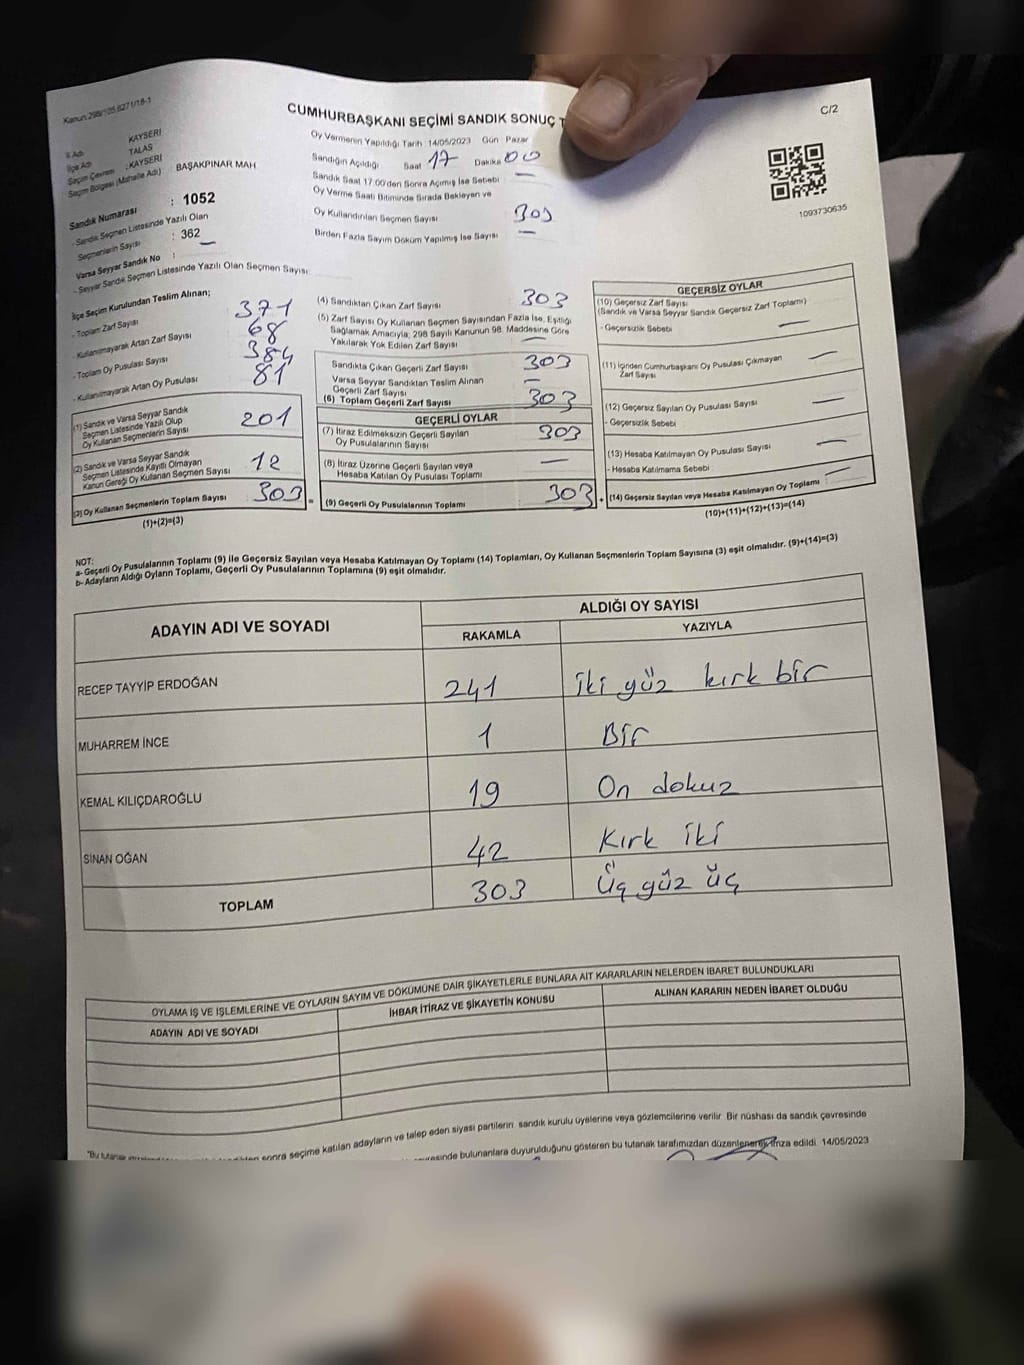 Kanun.298/105.6271/18-1
CUMHURBAŞKANI SEÇİMİ SANDIK SONUÇ T
C/2
İl Adı KAYSERİ
İlçe Adı TALAS
Seçim Çevresi : KAYSERİ
Seçim Bölgesi (Mahalle Adı) : BAŞAKPINAR MAH
Sandık Numarası : 1052
- Sandık Seçmen Listesinde Yazılı Olan
Seçmenlerin Sayısı : 362
Varsa Seyyar Sandık No :
- Seyyar Sandık Seçmen Listesinde Yazılı Olan Seçmen Sayısı:
Oy Vermenin Yapıldığı Tarih 14/05/2023 Gün Pazar
Sandığın Açıldığı Saat 17 Dakika 00
Sandık Saat 17.00'den Sonra Açımış İse Sebebi —
Oy Verme Saati Bitiminde Sırada Bekleyen ve
Oy Kullandırılan Seçmen Sayısı 303
Birden Fazla Sayım Döküm Yapılmış İse Sayısı —
1093730635
İlçe Seçim Kurulundan Teslim Alınan;
- Toplam Zarf Sayısı 371
- Kullanılmayarak Artan Zarf Sayısı 68
- Toplam Oy Pusulası Sayısı 384
- Kullanılmayarak Artan Oy Pusulası 81
(1) Sandık ve Varsa Seyyar Sandık
Seçmen Listesinde Yazılı Olup
Oy Kullanan Seçmenlerin Sayısı 201
(2) Sandık ve Varsa Seyyar Sandık
Seçmen Listesinde Kayıtlı Olmayan
Kanun Gereği Oy Kullanan Seçmen Sayısı 12
(3) Oy Kullanan Seçmenlerin Toplam Sayısı 303 =
(1)+(2)=(3)
(4) Sandıktan Çıkan Zarf Sayısı 303
(5) Zarf Sayısı Oy Kullanan Seçmen Sayısından Fazla İse, Eşitliği
Sağlamak Amacıyla; 298 Sayılı Kanunun 98. Maddesine Göre
Yakılarak Yok Edilen Zarf Sayısı —
Sandıkta Çıkan Geçerli Zarf Sayısı 303
Varsa Seyyar Sandıktan Teslim Alınan
Geçerli Zarf Sayısı —
(6) Toplam Geçerli Zarf Sayısı 303
GEÇERLİ OYLAR
(7) İtiraz Edilmeksizin Geçerli Sayılan
Oy Pusulalarının Sayısı 303
(8) İtiraz Üzerine Geçerli Sayılan veya
Hesaba Katılan Oy Pusulası Toplamı —
(9) Geçerli Oy Pusulalarının Toplamı 303 +
GEÇERSİZ OYLAR
(10) Geçersiz Zarf Sayısı
(Sandık ve Varsa Seyyar Sandık Geçersiz Zarf Toplamı)
- Geçersizlik Sebebi —
(11) İçinden Cumhurbaşkanı Oy Pusulası Çıkmayan
Zarf Sayısı —
(12) Geçersiz Sayılan Oy Pusulası Sayısı —
- Geçersizlik Sebebi
(13) Hesaba Katılmayan Oy Pusulası Sayısı —
- Hesaba Katılmama Sebebi
(14) Geçersiz Sayılan veya Hesaba Katılmayan Oy Toplamı —
(10)+(11)+(12)+(13)=(14)
NOT:
a- Geçerli Oy Pusulalarının Toplamı (9) ile Geçersiz Sayılan veya Hesaba Katılmayan Oy Toplamı (14) Toplamları, Oy Kullanan Seçmenlerin Toplam Sayısına (3) eşit olmalıdır. (9)+(14)=(3)
b- Adayların Aldığı Oyların Toplamı, Geçerli Oy Pusulalarının Toplamına (9) eşit olmalıdır.
ADAYIN ADI VE SOYADI
ALDIĞI OY SAYISI
RAKAMLA YAZIYLA
RECEP TAYYİP ERDOĞAN 241 iki yüz kırk bir
MUHARREM İNCE 1 Bir
KEMAL KILIÇDAROĞLU 19 On dokuz
SİNAN OĞAN 42 Kırk iki
TOPLAM 303 Üç yüz üç
OYLAMA İŞ VE İŞLEMLERİNE VE OYLARIN SAYIM VE DÖKÜMÜNE DAİR ŞİKAYETLERLE BUNLARA AİT KARARLARIN NELERDEN İBARET BULUNDUKLARI
ADAYIN ADI VE SOYADI İHBAR İTİRAZ VE ŞİKAYETİN KONUSU ALINAN KARARIN NEDEN İBARET OLDUĞU
sonra seçime katılan adayların ve talep eden siyasi partilerin sandık kurulu üyelerine veya gözlemcilerine verilir. Bir nüshası da sandık çevresinde
bulunanlara duyurulduğunu gösteren bu tutanak tarafımızdan düzenlenerek imza edildi. 14/05/2023